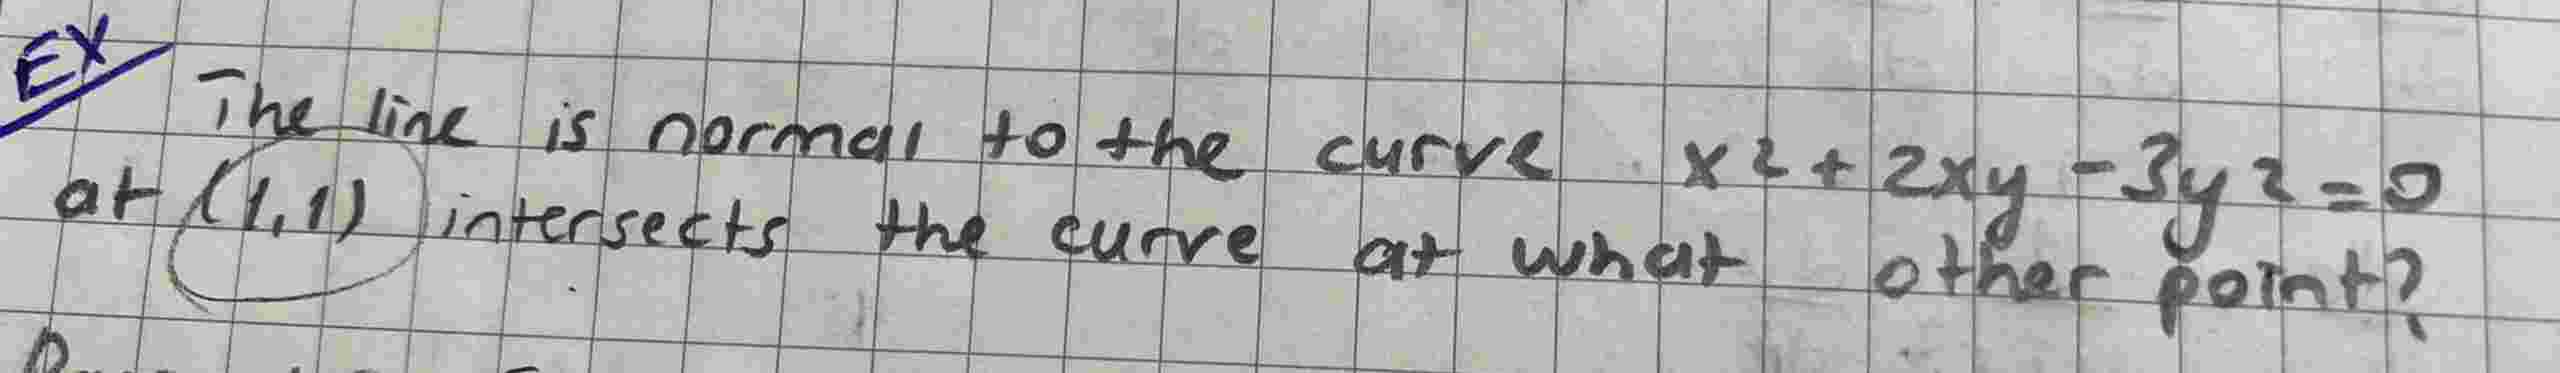 EX
The line is normal to the curve x²+2xy-3y²=0
at (1,1) intersects the curve at what other point?